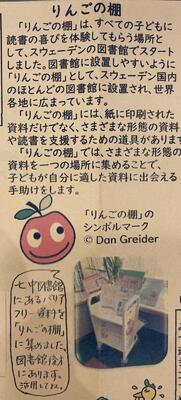 りんごの棚
「りんごの棚」は、すべての子どもに
読書の喜びを体験してもらう場所と
して、スウェーデンの図書館でスタート
しました。図書館に設置しやすいように
「りんごの棚」として、スウェーデン国内
のほとんどの図書館に設置され、世界
各地に広まっています。
「りんごの棚」には、紙に印刷された
資料だけでなく、さまざまな形態の資料
や読書を支援するための道具があります
「りんごの棚」では、さまざまな形態の
資料を一つの場所に集めることで、
子どもが自分に適した資料に出会える
手助けをします。
「りんごの棚」の
シンボルマーク
© Dan Greider
七中図書館
にあるバリア
フリー資料を
「りんごの棚」
に集めました。
図書館後方
にあります。